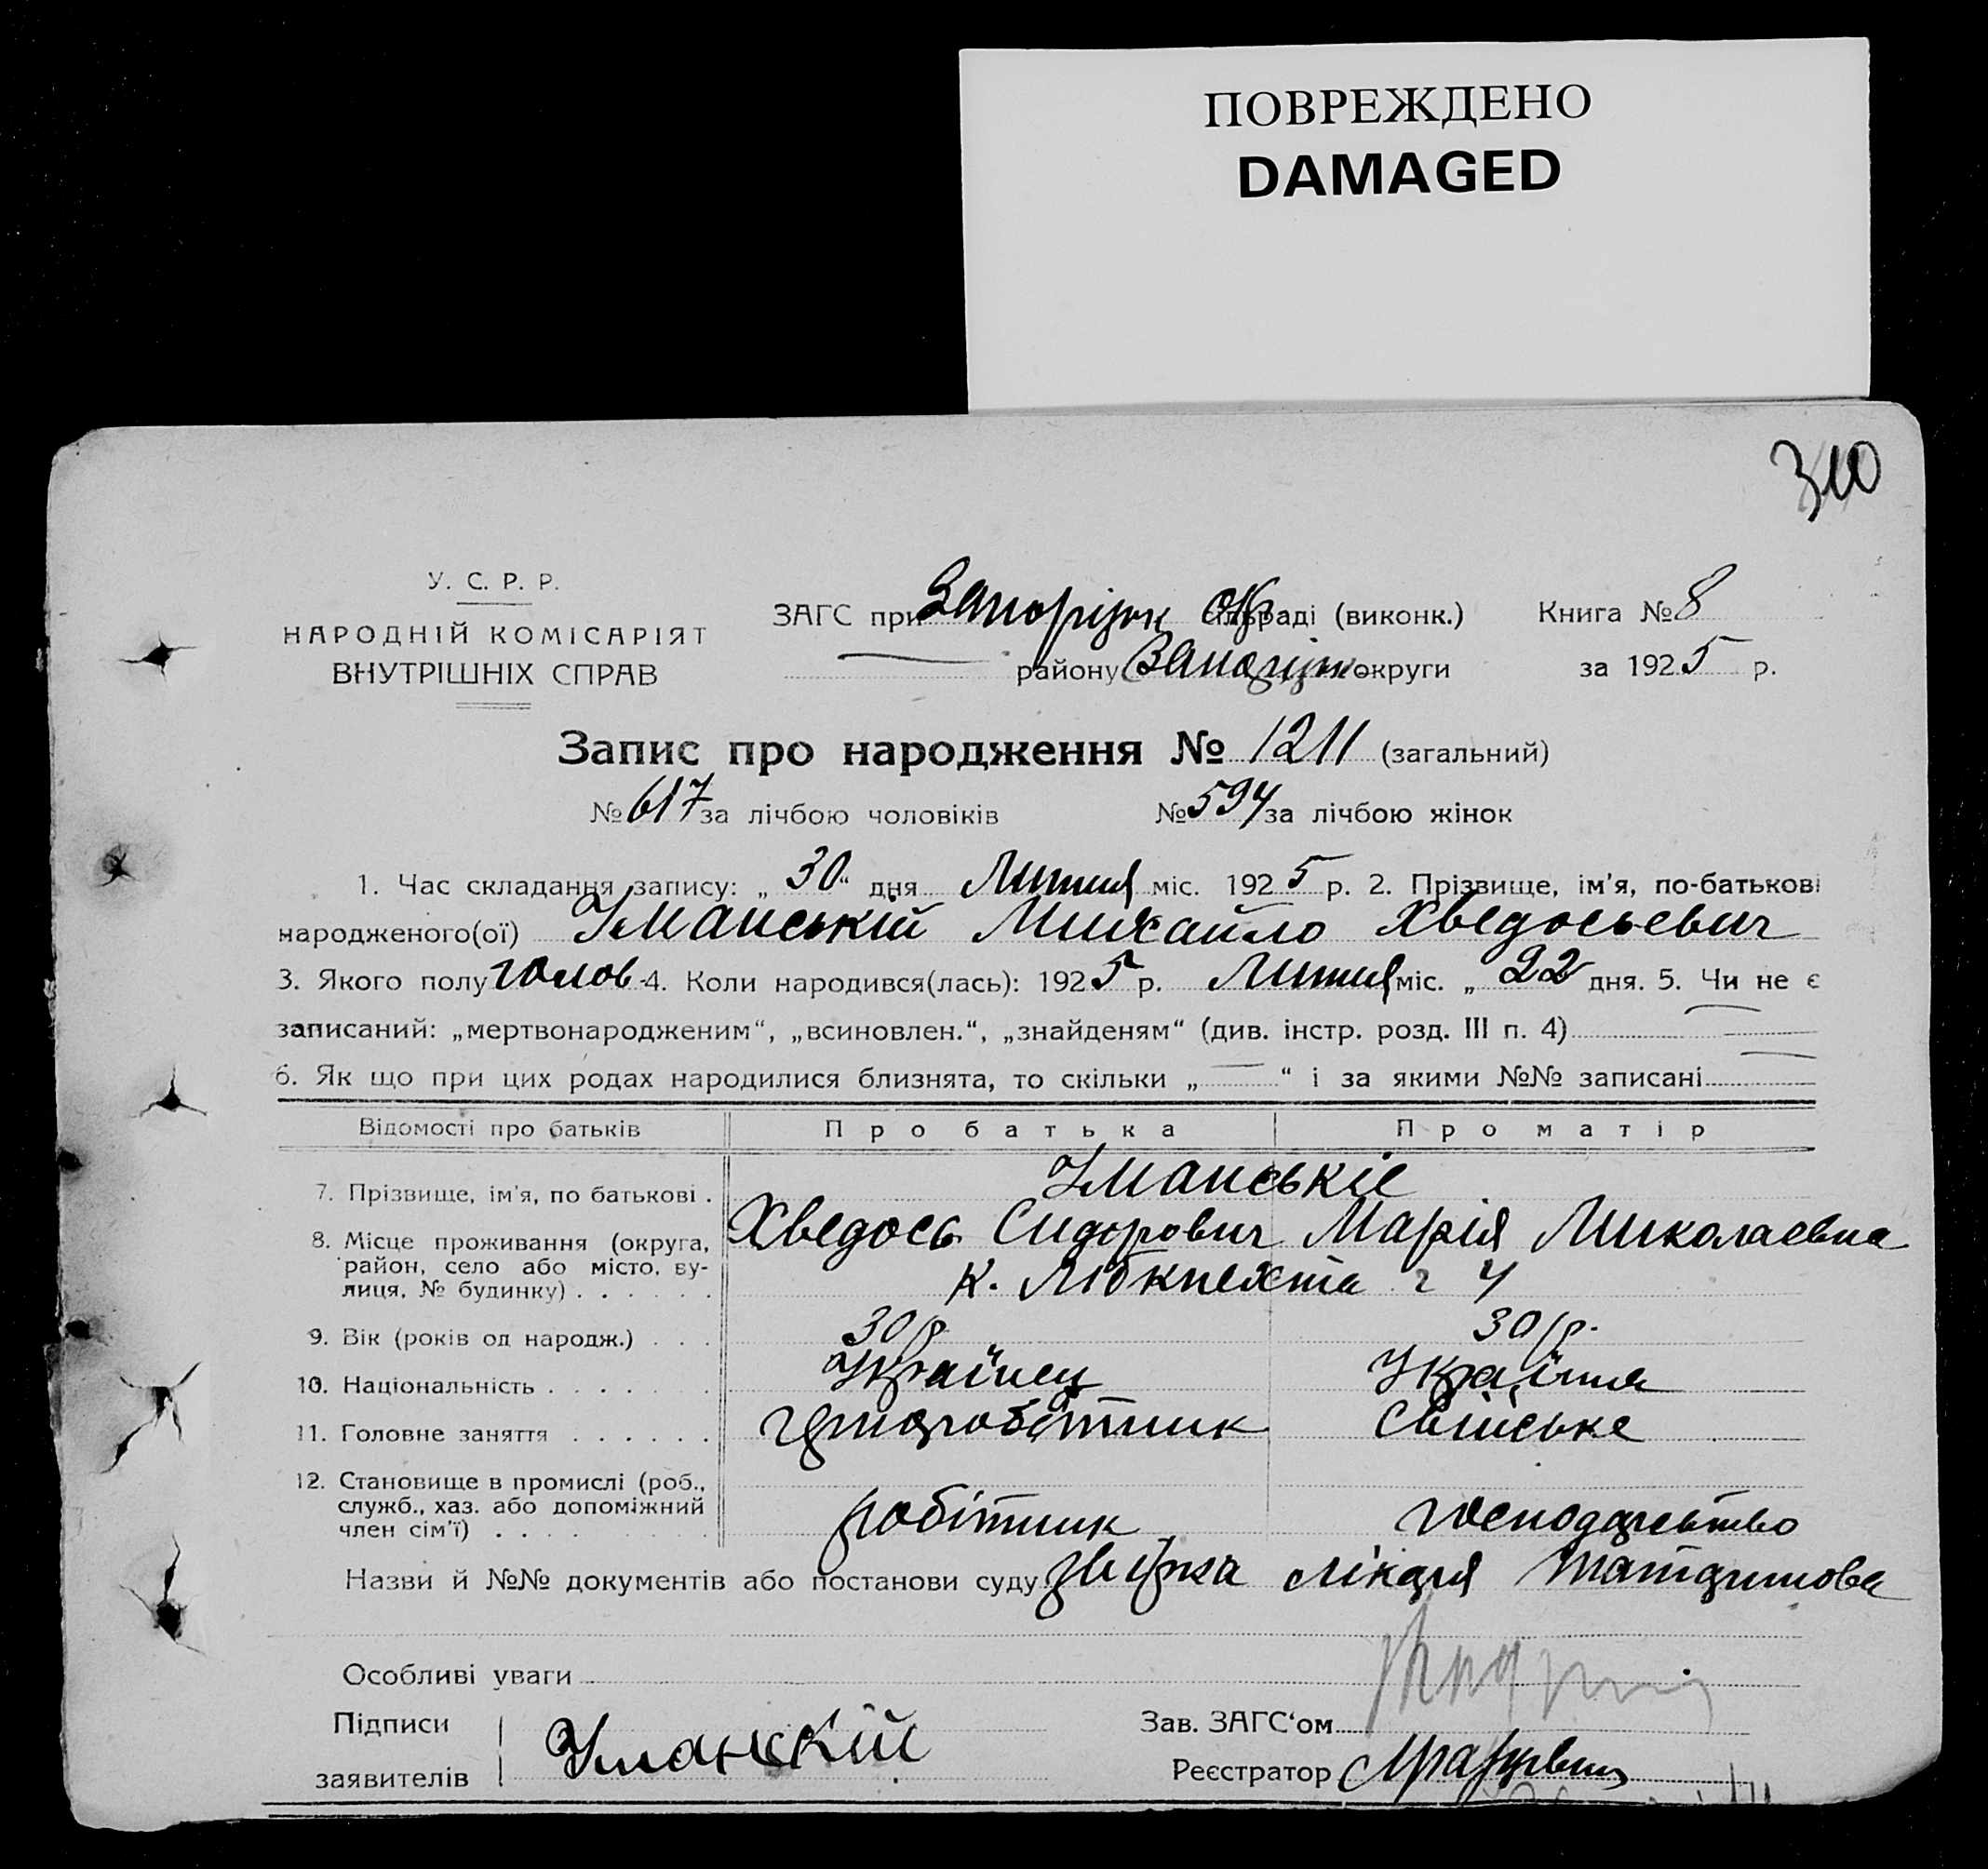 ПОВРЕЖДЕНО
DAMAGED
310
У. С. Р. Р.
НАРОДНІЙ КОМІСАРІЯТ
ВНУТРІШНІХ СПРАВ
ЗАГС при Запоріжк окр раді (виконк.) Книга № 8
району Запоріжк округи за 1925 р.
Запис про народження № 1211 (загальний)
№ 617 за лічбою чоловіків № 594 за лічбою жінок
1. Час складання запису: „ 30 “ дня Липня міс. 1925 р. 2. Прізвище, ім'я, по-батькові
народженого(ої) Уманський Михайло Хведосьевич
3. Якого полу чолов 4. Коли народився(лась): 1925 р. Липня міс. „ 22 дня. 5. Чи не є
записаний: „мертвонародженим“, „всиновлен.“, „знайденям“ (див. інстр. розд. III п. 4)
6. Як що при цих родах народилися близнята, то скільки „ — “ і за якими №№ записані —
Відомості про батьків Про батька Про матір
7. Прізвище, ім'я, по батькові . Уманськіе
Хведось Сидорович Марія Миколаевна
8. Місце проживання (округа, район, село або місто, вулиця, № будинку) . . . . . . К. Лібкнехта ч 4
9. Вік (років од народж.) . . . 30 р 30 р.
10. Національність . . . . . . . Українец Українка
11. Головне заняття . . . . . . чорноробітник Свійське
12. Становище в промислі (роб., служб., хаз. або допоміжний член сім'ї) . . . . робітник господарьство
Назви й №№ документів або постанови суду лікаря
Особливі уваги
Підписи
заявителів Уманскій
Зав. ЗАГС'ом
Реєстратор